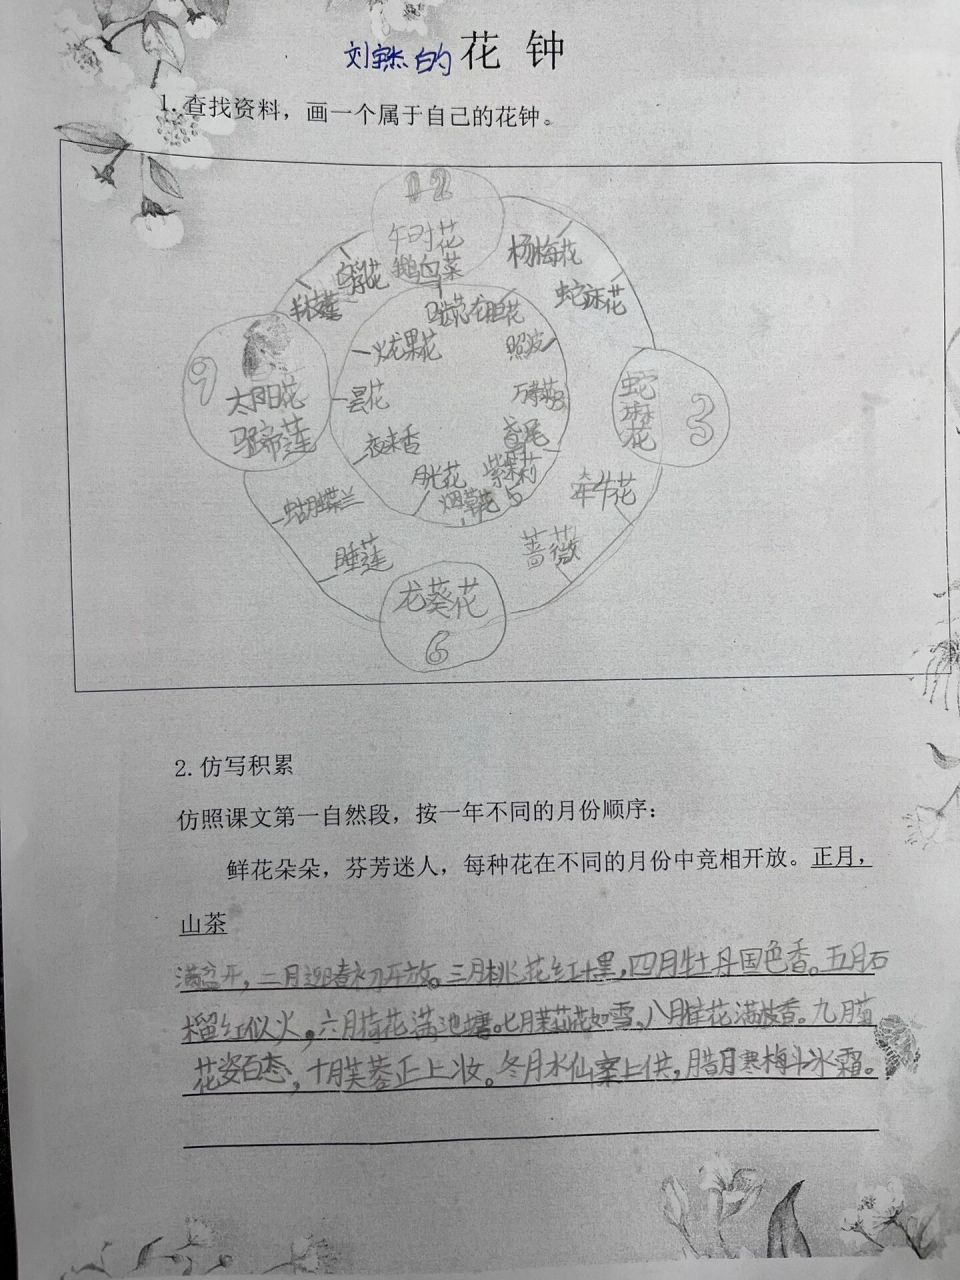 刘宇杰的 花 钟
1. 查找资料，画一个属于自己的花钟。
12
午时花
鹅鸟菜
杨梅花
蛇床花
半枝莲
龙胆花
火龙果花
照波
9
太阳花
昙花
万寿菊3
蛇麻花
3
马蹄莲
夜来香
鸢尾
月光花
紫茉莉
烟草花
5
牵牛花
蝴蝶兰
睡莲
蔷薇
龙葵花
6
2. 仿写积累
仿照课文第一自然段，按一年不同的月份顺序：
鲜花朵朵，芬芳迷人，每种花在不同的月份中竞相开放。正月，
山茶
满盆开，二月迎春初开放。三月桃花红十里，四月牡丹国色香。五月石
榴红似火，六月荷花满池塘。七月茉莉花如雪，八月桂花满枝香。九月菊
花姿百态，十月芙蓉正上妆。冬月水仙案上供，腊月寒梅斗冰霜。